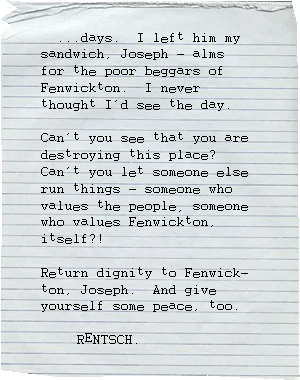 ...days. I left him my
sandwich, Joseph – alms
for the poor beggars of
Fenwickton. I never
thought I'd see the day.
Can't you see that you are
destroying this place?
Can't you let someone else
run things – someone who
values the people, someone
who values Fenwickton,
itself?!
Return dignity to Fenwick-
ton, Joseph. And give
yourself some peace, too.
RENTSCH.